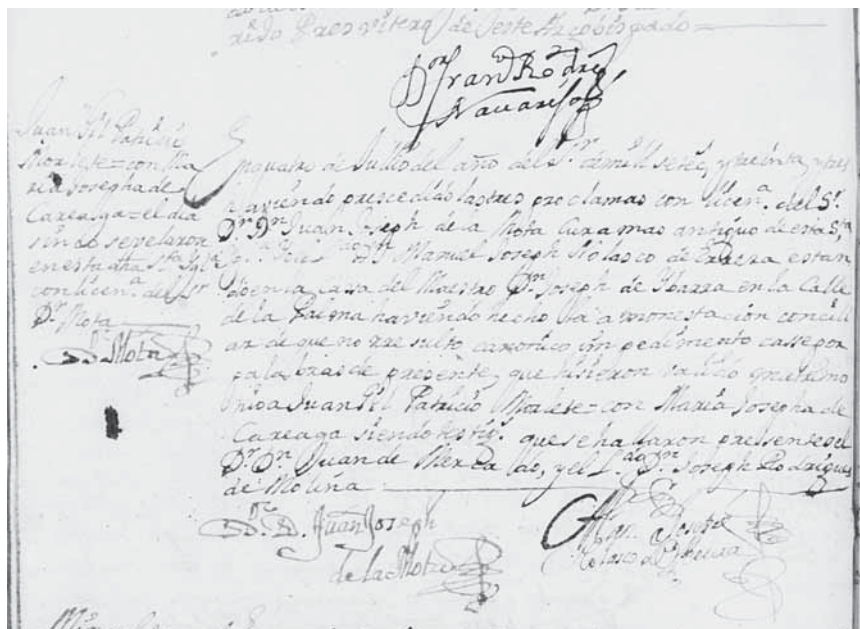 rido Presvitero de este Arçobispado
Dor. Franco. Rodrĩs
Navarijo
Juan Gil Patricio
Morlete = con Ma
ria Josepha de
Careaga = el dia
se velaron
en esta dha Sta. Igla
con licena. del Sr
Dr. Mota
Dr. Mota
En quatro de Julio del año del Sr. de mill setecs. y treinta y tres
haviendo prescedido las tres proclamas con licena. del Sr.
Dr. Dn. Juan Joseph de la Mota Cura mas antiguo de esta Sta.
Yo el Manuel Joseph Nolasco de Errera estan
do en la casa del Maestro Dn. Joseph de Ybarra en la Calle
de la haviendo hecho la amonestacion concili
ar de que no rresulto canonico ympedimento casse por
palabras de presente, que hisieron valido matrimo
nio a Juan Gil Patricio Morlete = con Maria Josepha de
Careaga siendo testigs. que se hallaron pressentes el
Dr. Dn. Juan de Mercado, y el Ldo. Dn. Joseph Rodrigues
de Molina
Dr. D. Juan Joseph
de la Mota
Joseph
Nolasco de Herrera